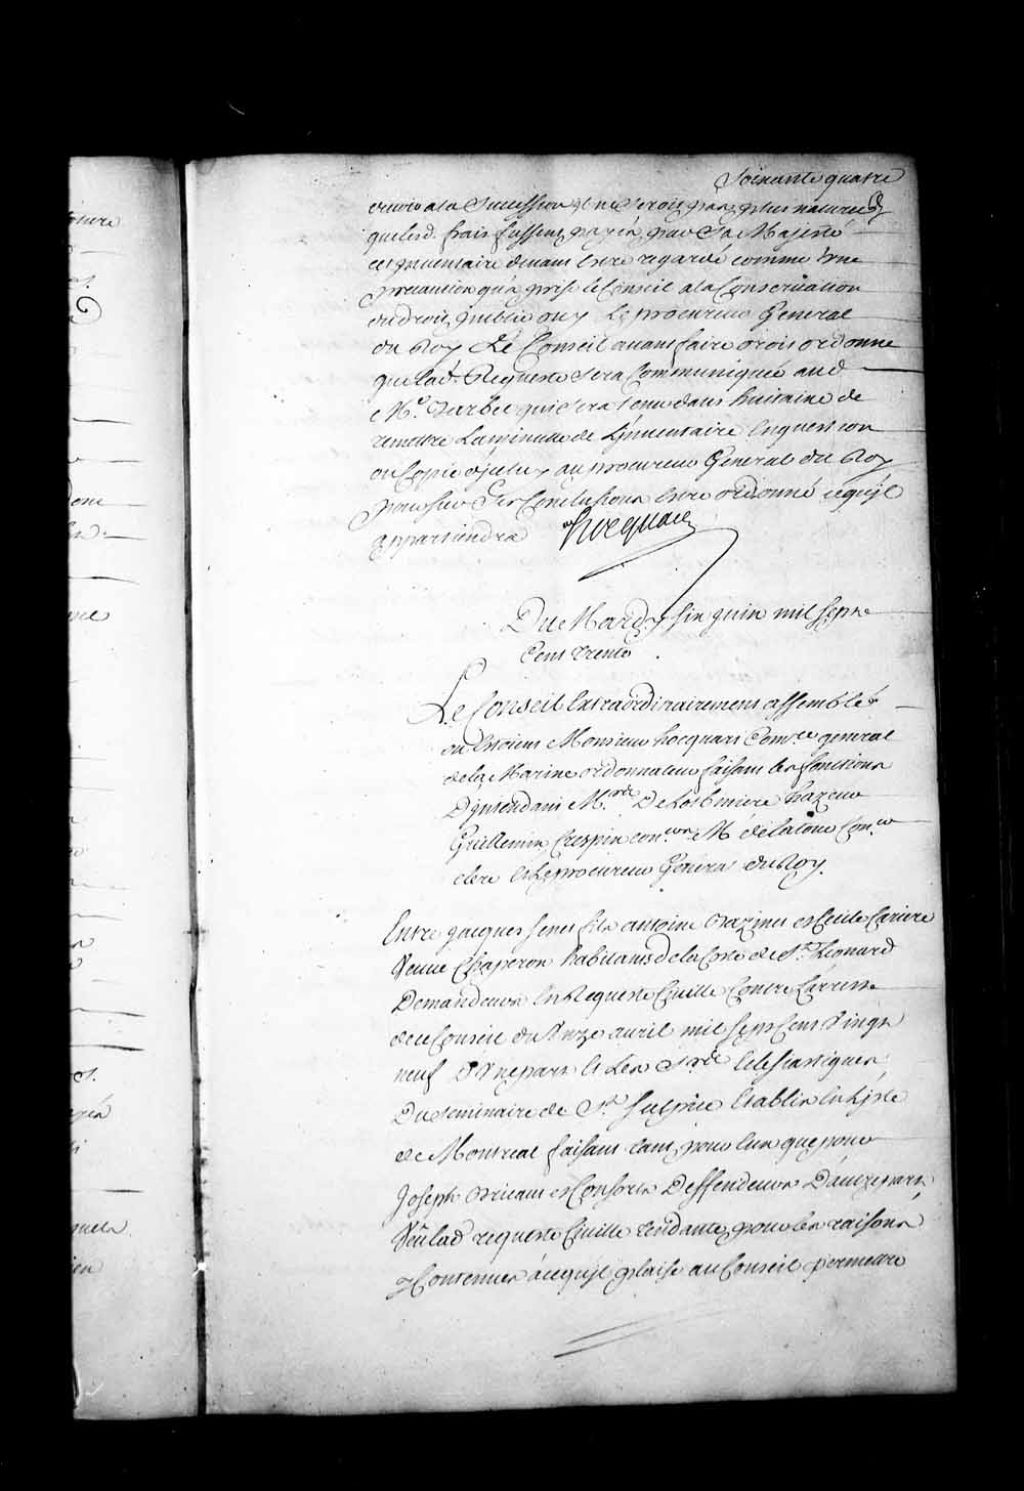 Soixante quatre
envoÿ a la Succession il ne seroit pas plus naturel
que lesd. frais fussent payés par Sa Majesté
cet Inventaire devant estre regardé comme une
precaution qu'a prise le Conseil a la Conservation
du droit public ouy Le procureur General
du Roy Le Conseil avant faire droit ordonne
que lad. Requeste sera Communiquée aud
Me. Barbel qui sera tenu dans huitaine de
remettre La minutte de L'Inventaire en question
ou Copie d'jceluy au procureur General du Roy
pour sur Ses Conclusions estre ordonné ce qu'il
appartiendra Hocquart
Du Mardy six Juin mil Sept
Cent trente
Le Conseil Extraordinairement assemblé
ou Estoient Monsieur hocquart Comre. general
de la Marine ordonnateur faisant les fonctions
D'Intendant Mrs. De Lotbiniere hazeur
Guillemin Crespin coners. Mr delatour Coner
clerc Et Le procureur General du Roy.
Entre Jacques fils antoine bazinet et Cecile Cariere
Veuve Chaperon habitants de la Coste de St. Leonard
Demandeurs En Requeste Civille Contre L'arrest
de ce Conseil du Unze avril mil Sept Cent Vingt
neuf D'Une part Et Les Srs. Eclesiastiques
Du Seminaire de St. Sulpice Establis En L'Isle
de Montreal faisant tant pour Eux que pour
Joseph et Consorts Deffendeurs D'autre part
Vû lad requeste Civille tendante pour les raisons
y Contenues à ce qu'il plaise au Conseil permettre